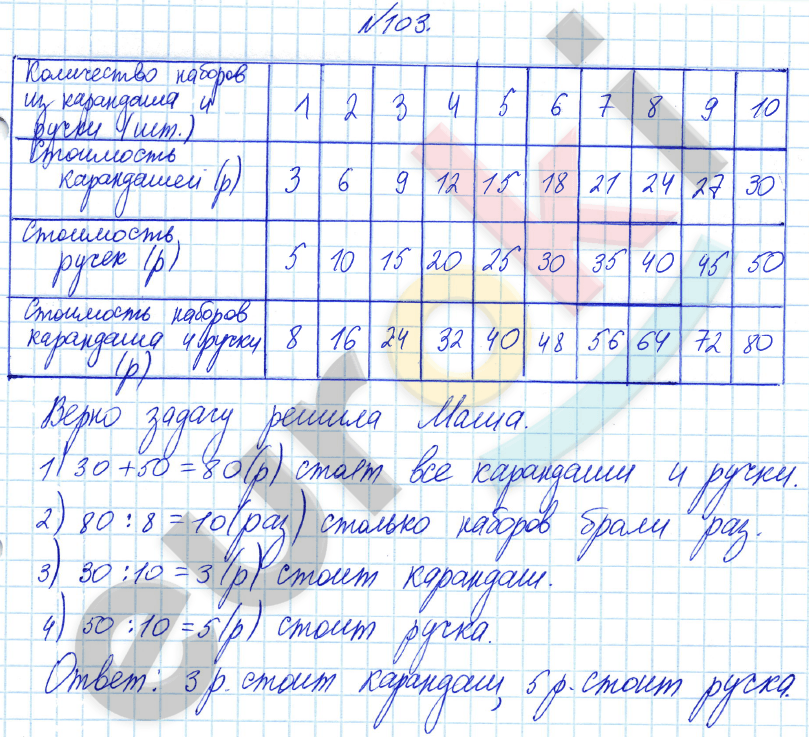 №103.
Количество наборов из карандаша и ручки (шт.) 1 2 3 4 5 6 7 8 9 10
Стоимость карандашей (р) 3 6 9 12 15 18 21 24 27 30
Стоимость ручек (р) 5 10 15 20 25 30 35 40 45 50
Стоимость наборов карандаша и ручки (р) 8 16 24 32 40 48 56 64 72 80
Верно задачу решила Маша.
1) 30+50=80(р) стоят все карандаши и ручки.
2) 80:8=10(раз) столько наборов брали раз.
3) 30:10=3(р) стоит карандаш.
4) 50:10=5(р) стоит ручка.
Ответ: 3 р. стоит карандаш, 5 р. стоит ручка.
euroki